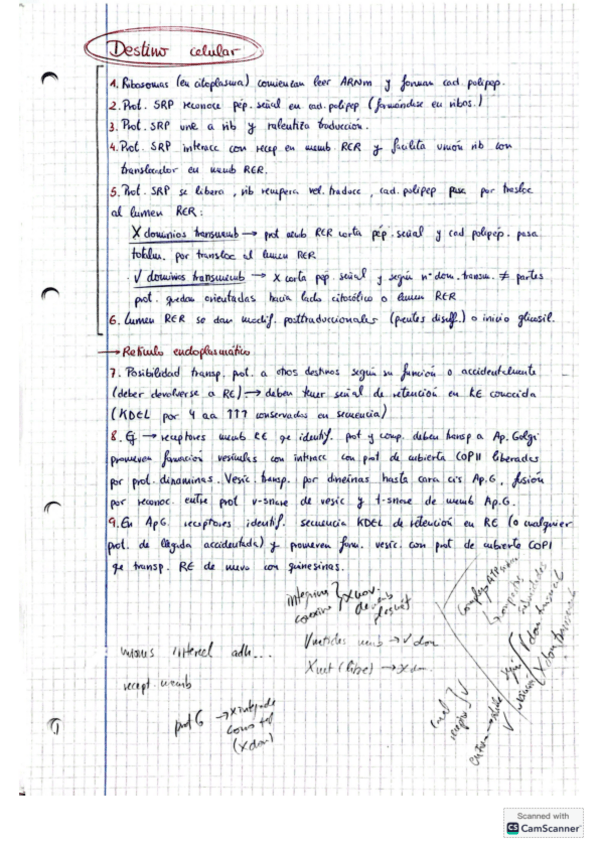 Destino celular
1. Ribosomas (en citoplasma) comienzan leer ARNm y forman cad. polipep.
2. Prot. SRP reconoce pép. señal en cad. polipep (formándose en ribos.)
3. Prot. SRP une a rib y ralentiza traducción.
4. Prot. SRP interacc con recep en memb. RER y facilita unión rib con
translocador en memb RER.
5. Prot SRP se libera, rib recupera vel. traducc, cad. polipep pasa por transloc
al lumen RER:
X dominios transmemb → prot memb RER corta pép. señal y cad polipép. pasa
totalm. por transloc al lumen RER
V dominios transmemb → X corta pép. señal y según nº dom. transm. ≠ partes
prot. quedan orientadas hacia lado citosólico o lumen RER
6. Lumen RER se dan modif. posttraduccionales (puentes disulf.) o inicio glicosil.
→ Retículo endoplasmático
7. Posibilidad transp. prot. a otros destinos según su función o accidentalmente
(deber devolverse a RE) → deben tener señal de retención en RE conocida
(KDEL por 4 aa ??? conservados en secuencia)
8. Ej → receptores memb RE qe identif. prot y comp. deben transp a Ap. Golgi
promueven formación vesículas con interacc con prot de cubierta COPII liberadas
por prot. dinaminas. Vesic. transp. por dineínas hasta cara cis Ap.G, fusión
por reconoc. entre prot v-snare de vesic y t-snare de memb Ap.G.
9. En Ap G. receptores identif. secuencia KDEL de retención en RE (o cualquier
prot. de llegada accidentada) y promueven form. vesic. con prot de cubierta COPI
qe transp. RE de nuevo con quinesinas.
integrina
conexina
X mov.
de memb
plasmát
Complejo ATP
uniones intercel adh...
V memb → V dom
X (libre) → X dom.
recept. memb
prot G → X
(X dom)
canal
receptor
V